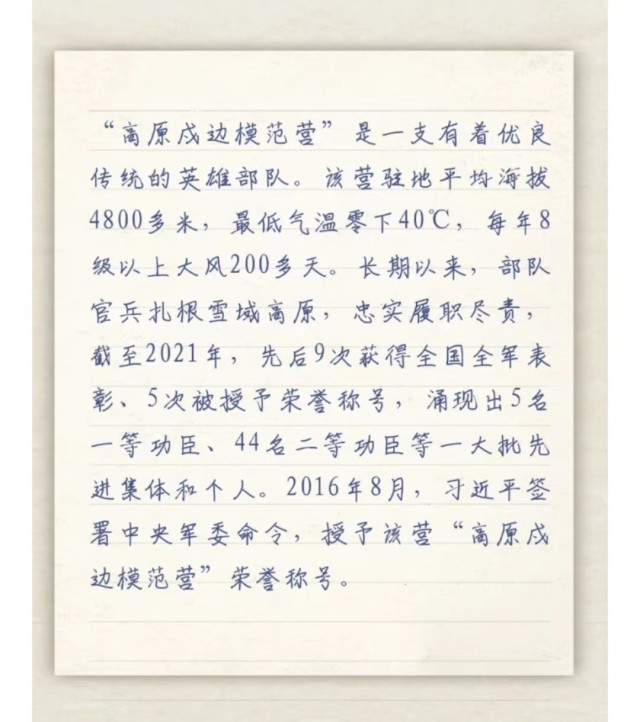 “高原戍边模范营”是一支有着优良
传统的英雄部队。该营驻地平均海拔
4800多米，最低气温零下40℃，每年8
级以上大风200多天。长期以来，部队
官兵扎根雪域高原，忠实履职尽责，
截至2021年，先后9次获得全国全军表
彰、5次被授予荣誉称号，涌现出5名
一等功臣、44名二等功臣等一大批先
进集体和个人。2016年8月，习近平签
署中央军委命令，授予该营“高原戍
边模范营”荣誉称号。